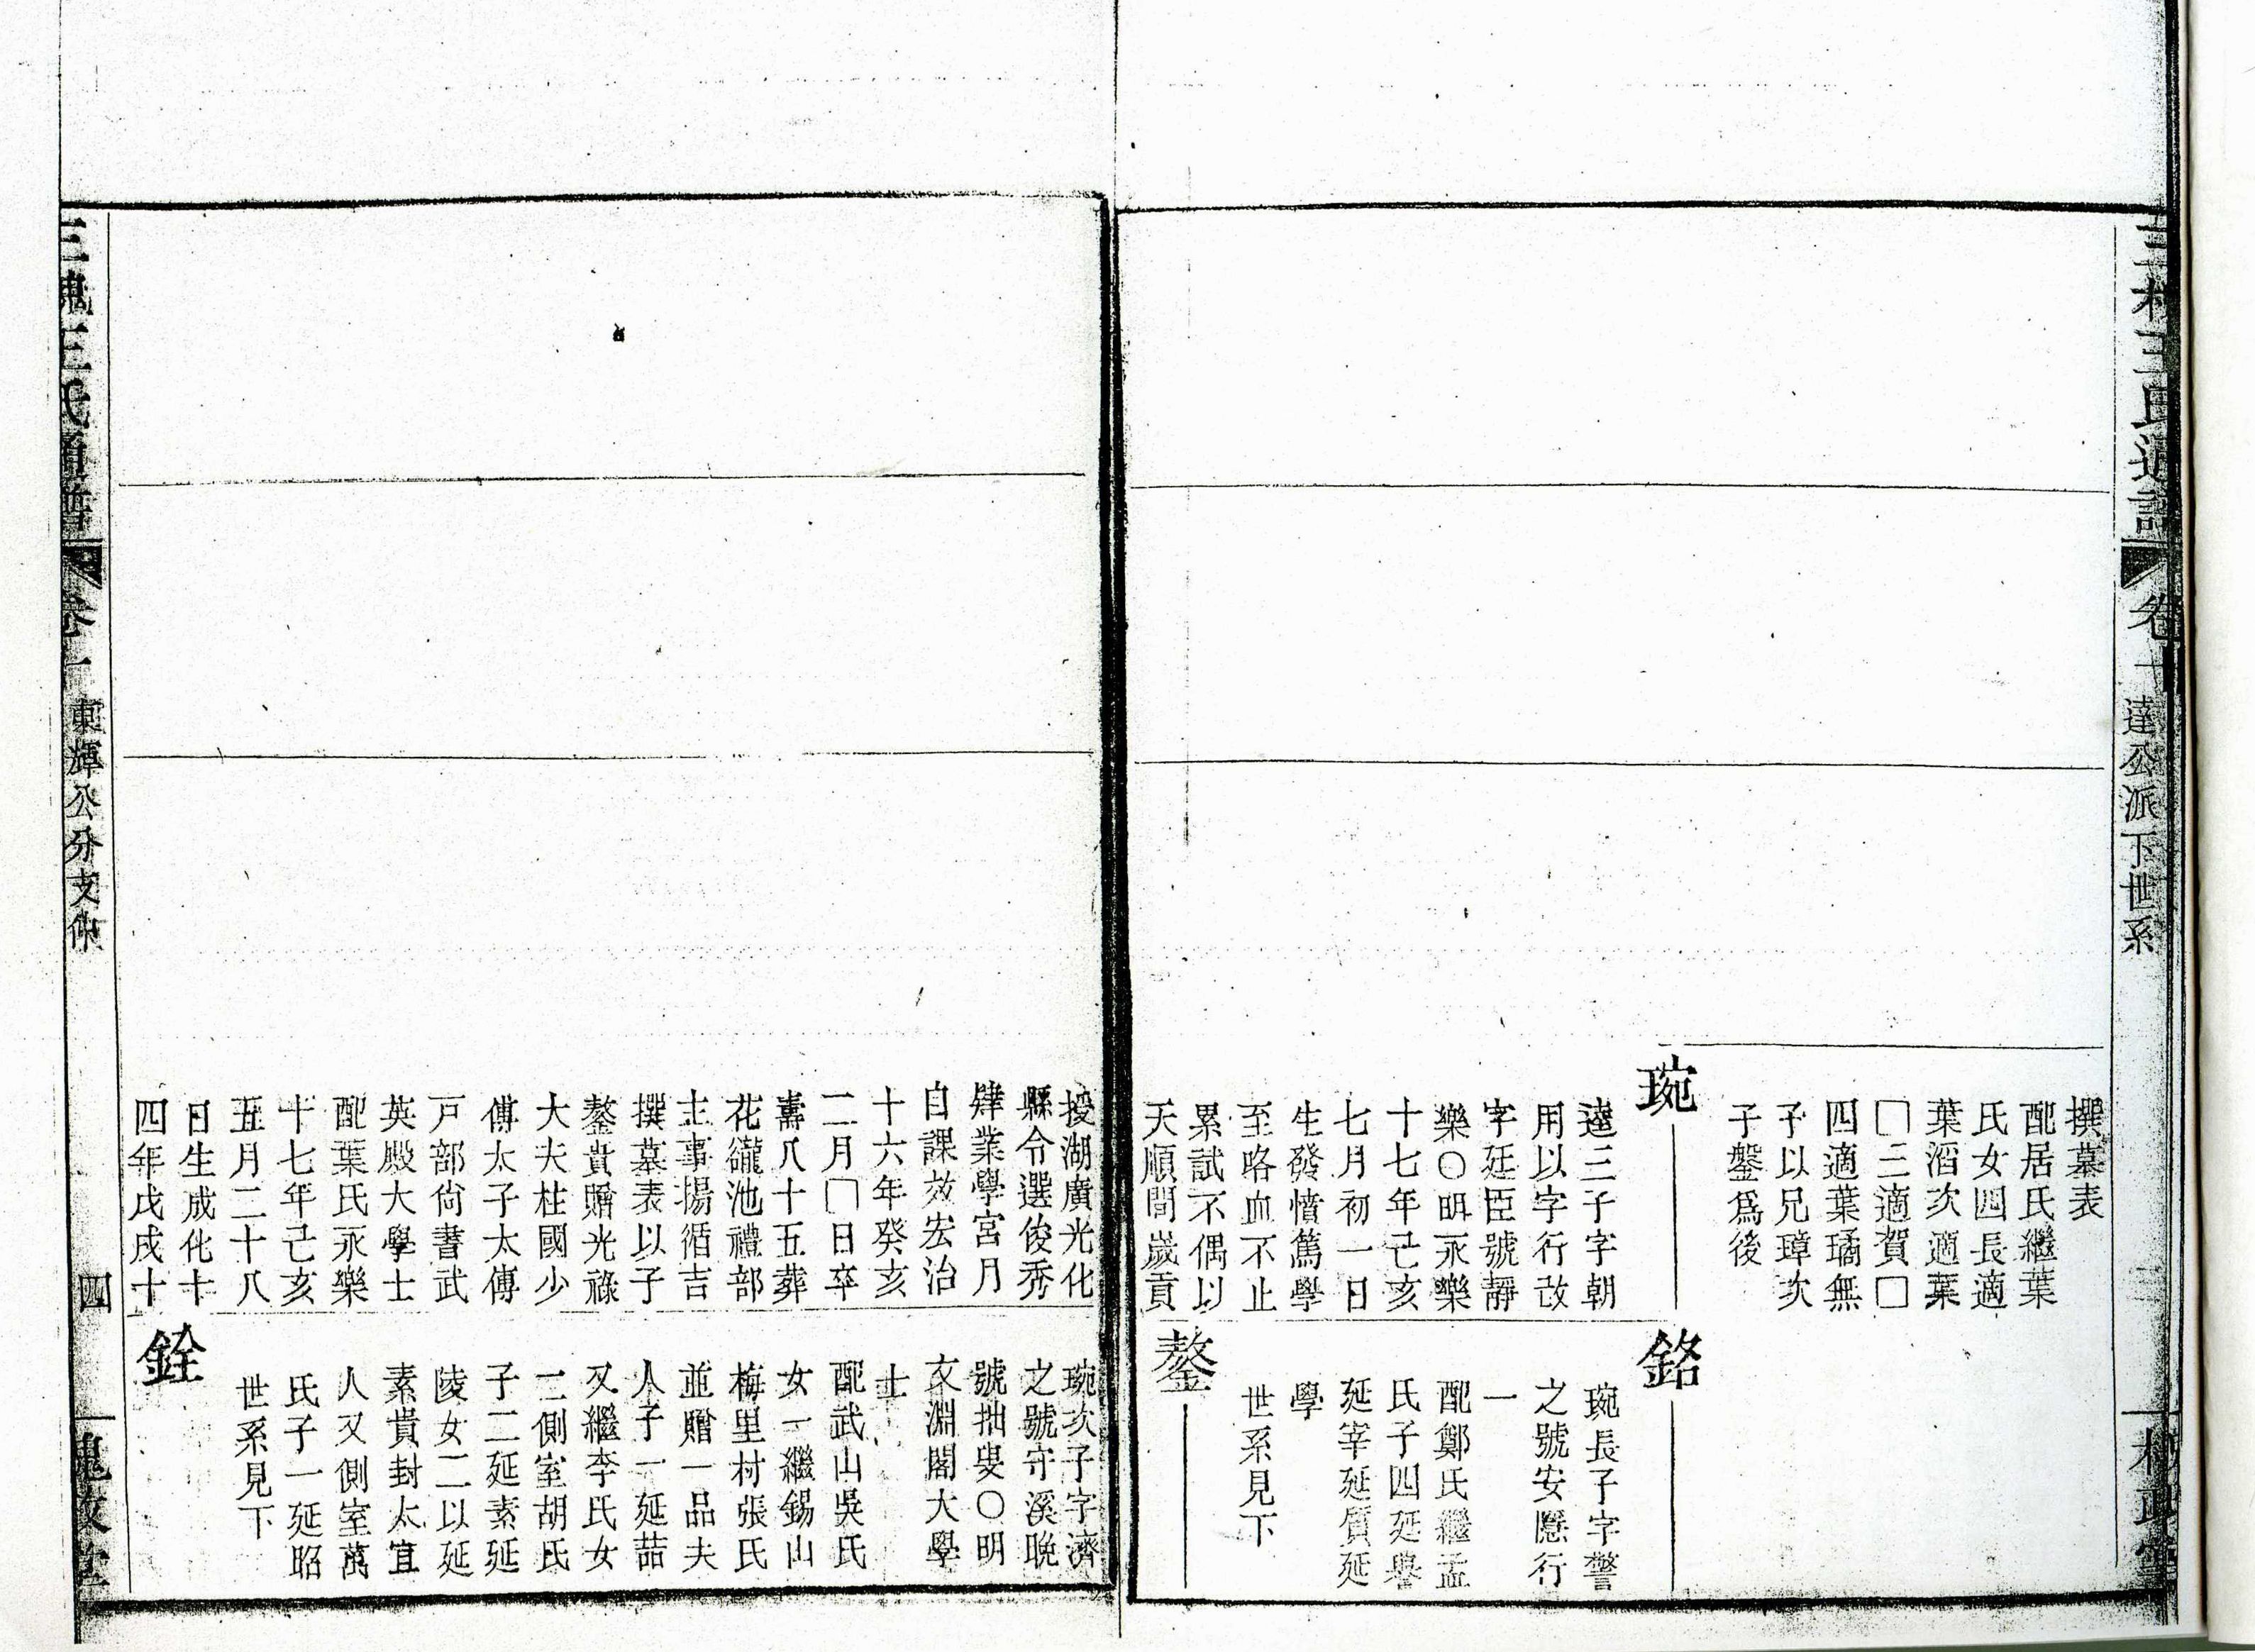 三槐王氏通譜
卷十
達公派下世系
槐政堂
撰墓表
配居氏繼葉
氏女四長適
葉滔次適葉
□三適賀□
四適葉璚無
子以兄璋次
子鏧爲後
琬
逵三子字朝
用以字行改
字廷臣號靜
樂○明永樂
十七年己亥
七月初一日
生發憤篤學
至咯血不止
累試不偶以
天順間歲貢
銘
琬長子字警
之號安隱行
一
配鄭氏繼孟
氏子四延譽
延宰延質延
學
世系見下
鏊
授湖廣光化
縣令選俊秀
肄業學宮月
自課效宏治
十六年癸亥
二月□日卒
壽八十五葬
花巃池禮部
主事楊循吉
撰墓表以子
鏊貴贈光祿
大夫柱國少
傅太子太傅
戸部尙書武
英殿大學士
配葉氏永樂
十七年己亥
五月二十八
日生成化十
四年戊戌十
琬次子字濟
之號守溪晩
號拙叟○明
文淵閣大學
士
配武山吳氏
女一繼錫山
梅里村張氏
並贈一品夫
人子一延喆
又繼李氏女
二側室胡氏
子二延素延
陵女二以延
素貴封太宜
人又側室萬
氏子一延昭
世系見下
銓
三槐王氏通譜
卷十
東輝公分支仲
四
槐政堂